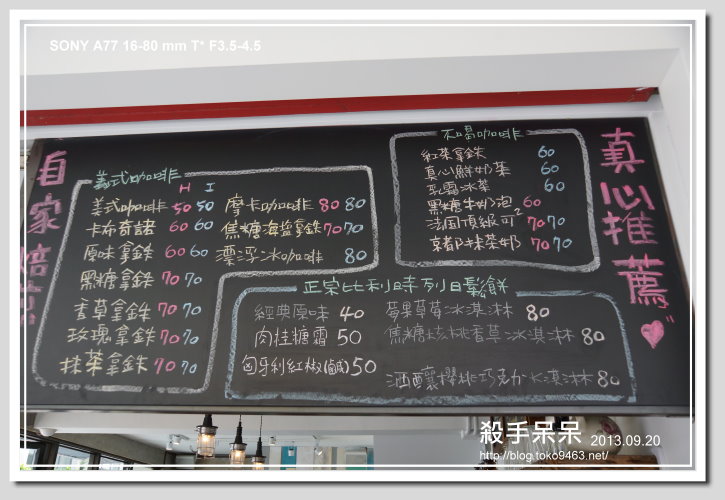 SONY A77 16-80 mm T* F3.5-4.5
自家焙煎
真心推薦
義式咖啡
H I
義式咖啡 50 50
卡布奇諾 60 60
原味拿鉄 60 60
黑糖拿鉄 70 70
香草拿鉄 70 70
玫瑰拿鉄 70 70
抹茶拿鉄 70 70
摩卡咖啡 80 80
焦糖海盐拿鉄 70 70
漂浮冰咖啡 80
不喝咖啡
紅茶拿鉄 60
真心鮮奶茶 60
60
黑糖牛奶泡 60
法国頂級可 70 70
京都抹茶奶 70 70
正宗比利時列日鬆餅
經典原味 40
肉桂糖霜 50
匈牙利紅椒(鹹) 50
莓果草莓冰淇淋 80
焦糖核桃香草冰淇淋 80
酒釀櫻桃巧克力冰淇淋 80
殺手呆呆 2013.09.20
http://blog.toko9463.net/